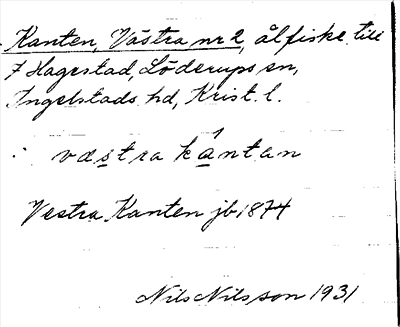 Kanten, Västra nr 2, ålfiske till
7 Hagestad, Löderups sn,
Ingelstads hd, Krist. l.
: västra kántan
Vestra Kanten jb 1874
Nils Nilsson 1931